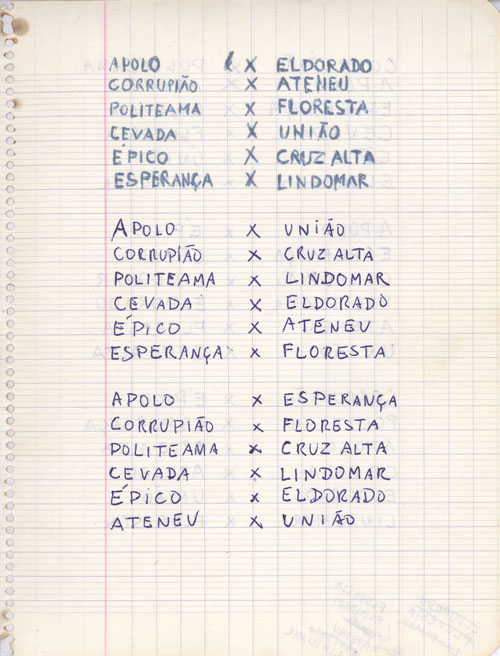 APOLO X ELDORADO
CORRUPIÃO X ATENEU
POLITEAMA X FLORESTA
CEVADA X UNIÃO
ÉPICO X CRUZ ALTA
ESPERANÇA X LINDOMAR
APOLO X UNIÃO
CORRUPIÃO X CRUZ ALTA
POLITEAMA X LINDOMAR
CEVADA X ELDORADO
ÉPICO X ATENEU
ESPERANÇA X FLORESTA
APOLO X ESPERANÇA
CORRUPIÃO X FLORESTA
POLITEAMA X CRUZ ALTA
CEVADA X LINDOMAR
ÉPICO X ELDORADO
ATENEU X UNIÃO